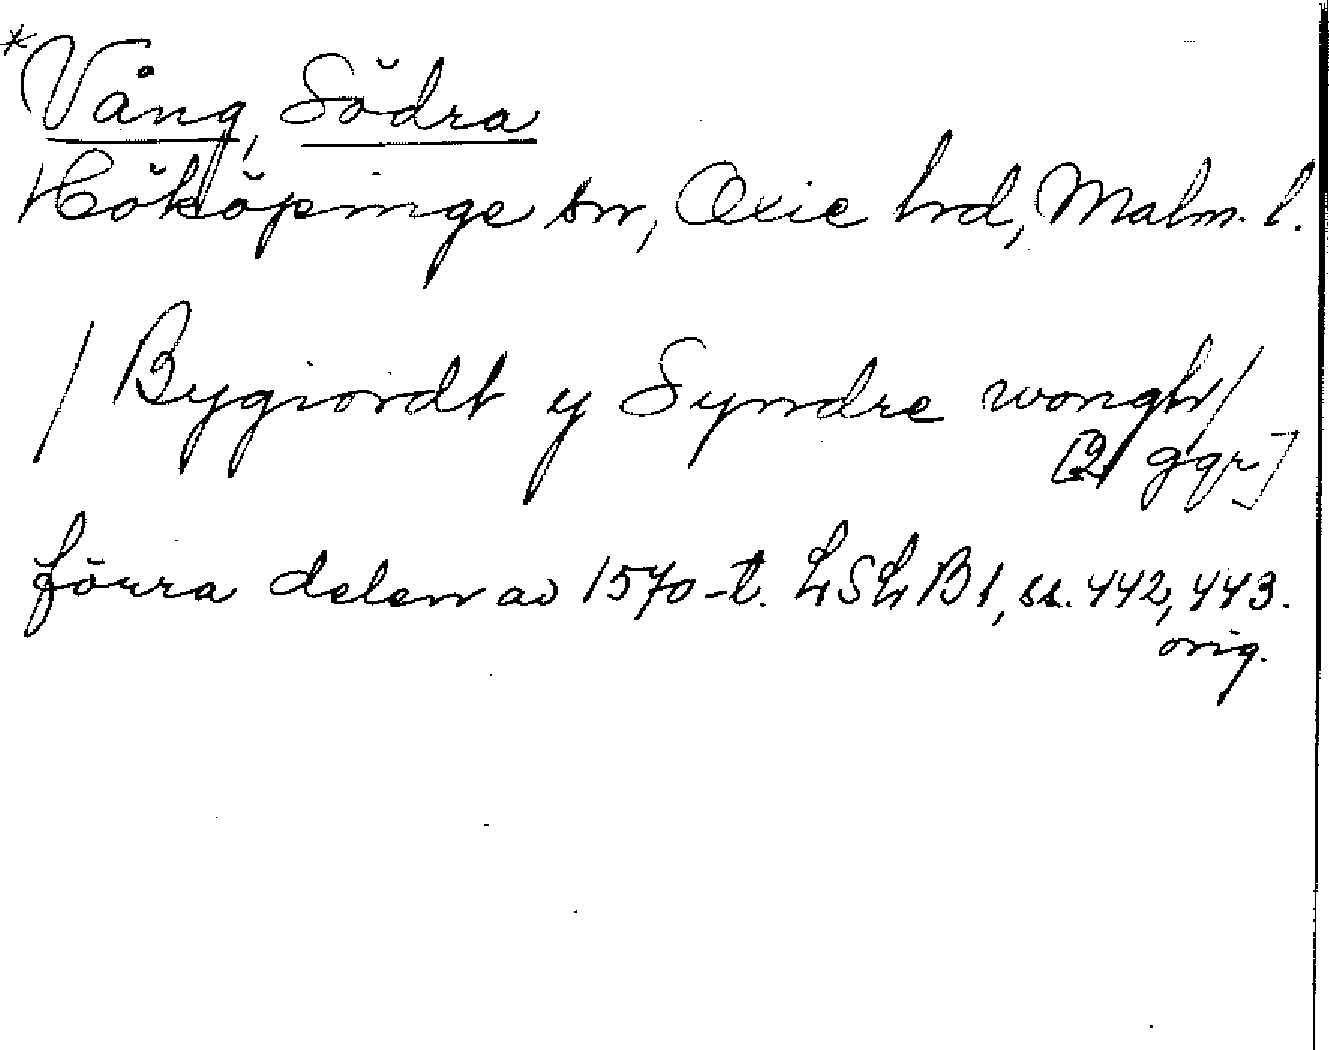 *Vång, Södra
Hököpinge sn, Oxie hd, Malm. l.
/Bygiordt y Syndre wongh/
[2 ggr]
förra delen av 1570-t. LSLB1, ss. 442, 443.
orig.